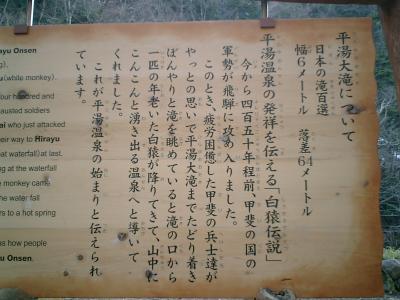 平湯大滝について
日本の滝百選
幅6メートル 落差64メートル
平湯温泉の発祥を伝える「白猿伝説」
今から四百五十年程前、甲斐の国の
軍勢が飛騨に攻め入りました。
このとき、疲労困憊した甲斐の兵士達が
やっとの思いで平湯大滝までたどり着き
ぼんやりと滝を眺めていると滝の口から
一匹の年老いた白猿が降りてきて、山中に
こんこんと湧き出る温泉へと導いて
くれました。
これが平湯温泉の始まりと伝えられ
ています。
ayu Onsen
(white monkey).
four hundred and
hausted soldiers
ai who just attacked
heir way to Hirayu
eat waterfall) at last.
ng at the waterfall
e monkey came
he water fall
rs to a hot spring
us how people
yu Onsen.